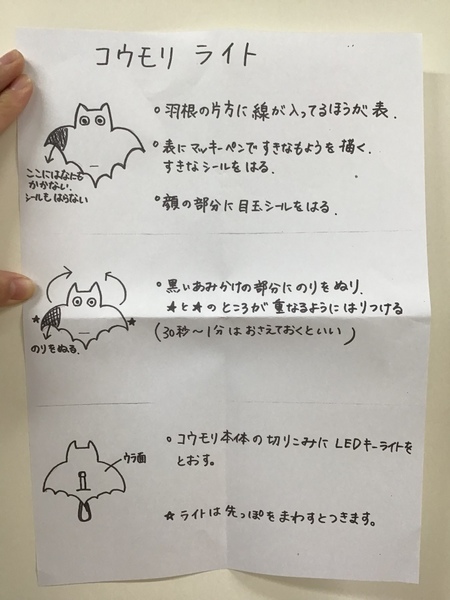 コウモリ ライト
。羽根の片方に線が入ってるほうが表.
。表にマッキーペンですきなもようを描く.
すきなシールをはる.
ここにはなにも
かかない.
シールもはらない
。顔の部分に目玉シールをはる.
。黒いあみかけの部分にのりをぬり.
★と★のところが重なるようにはりつける
(30秒〜1分はおさえておくといい)
★ ★
のりをぬる.
。コウモリ本体の切りこみにLEDキーライトを
とおす。
ウラ面
★ライトは先っぽをまわすとつきます。